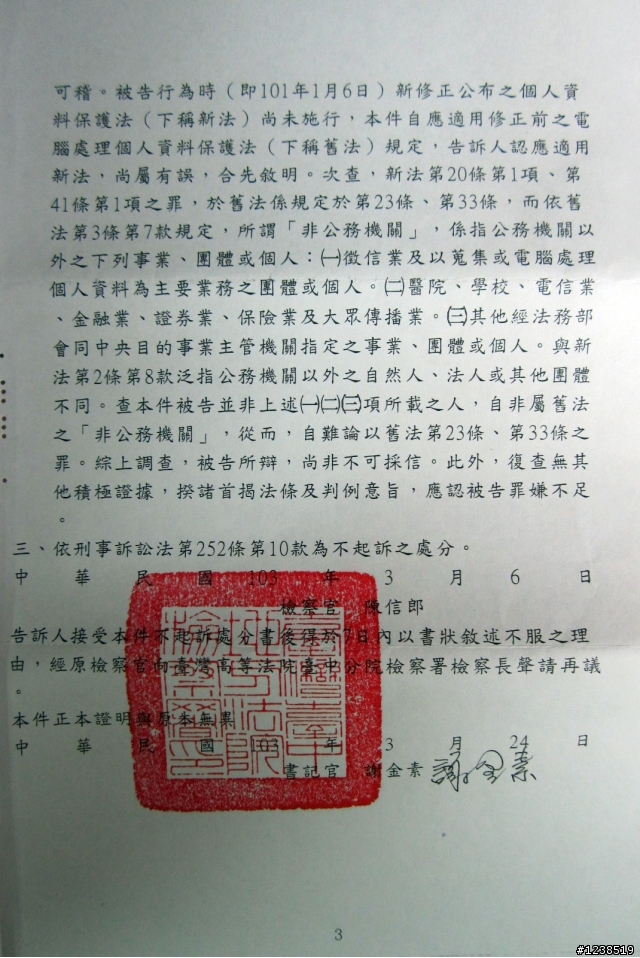 可稽。被告行為時（即101年1月6日）新修正公布之個人資
料保護法（下稱新法）尚未施行，本件自應適用修正前之電
腦處理個人資料保護法（下稱舊法）規定，告訴人認應適用
新法，尚屬有誤，合先敘明。次查，新法第20條第1項、第
41條第1項之罪，於舊法係規定於第23條、第33條，而依舊
法第3條第7款規定，所謂「非公務機關」，係指公務機關以
外之下列事業、團體或個人：㈠徵信業及以蒐集或電腦處理
個人資料為主要業務之團體或個人。㈡醫院、學校、電信業
、金融業、證券業、保險業及大眾傳播業。㈢其他經法務部
會同中央目的事業主管機關指定之事業、團體或個人。與新
法第2條第8款泛指公務機關以外之自然人、法人或其他團體
不同。查本件被告並非上述㈠㈡㈢項所載之人，自非屬舊法
之「非公務機關」，從而，自難論以舊法第23條、第33條之
罪。綜上調查，被告所辯，尚非不可採信。此外，復查無其
他積極證據，揆諸首揭法條及判例意旨，應認被告罪嫌不足
。
三、依刑事訴訟法第252條第10款為不起訴之處分。
中　華　民　國　103　年　3　月　6　日
檢察官　陳信郎
告訴人接受本件不起訴處分書後得於7日內以書狀敘述不服之理
由，經原檢察官向臺灣高等法院臺中分院檢察署檢察長聲請再議
。
本件正本證明與原本無異
中　華　民　國　103　年　3　月　24　日
書記官　謝金素　謝金素
臺灣臺中地方法院檢察署印
3
#1238519